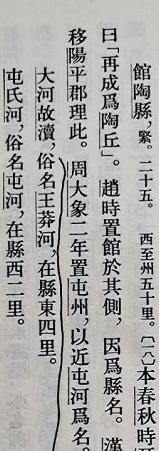 館陶縣，緊。二十五。　西至州五十里。〔一八〕本春秋時
曰「再成爲陶丘」。趙時置館於其側，因爲縣名。漢
移陽平郡理此。周大象二年置屯州，以近屯河爲名。
大河故瀆，俗名王莽河，在縣東四里。
屯氏河，俗名屯河，在縣西二里。